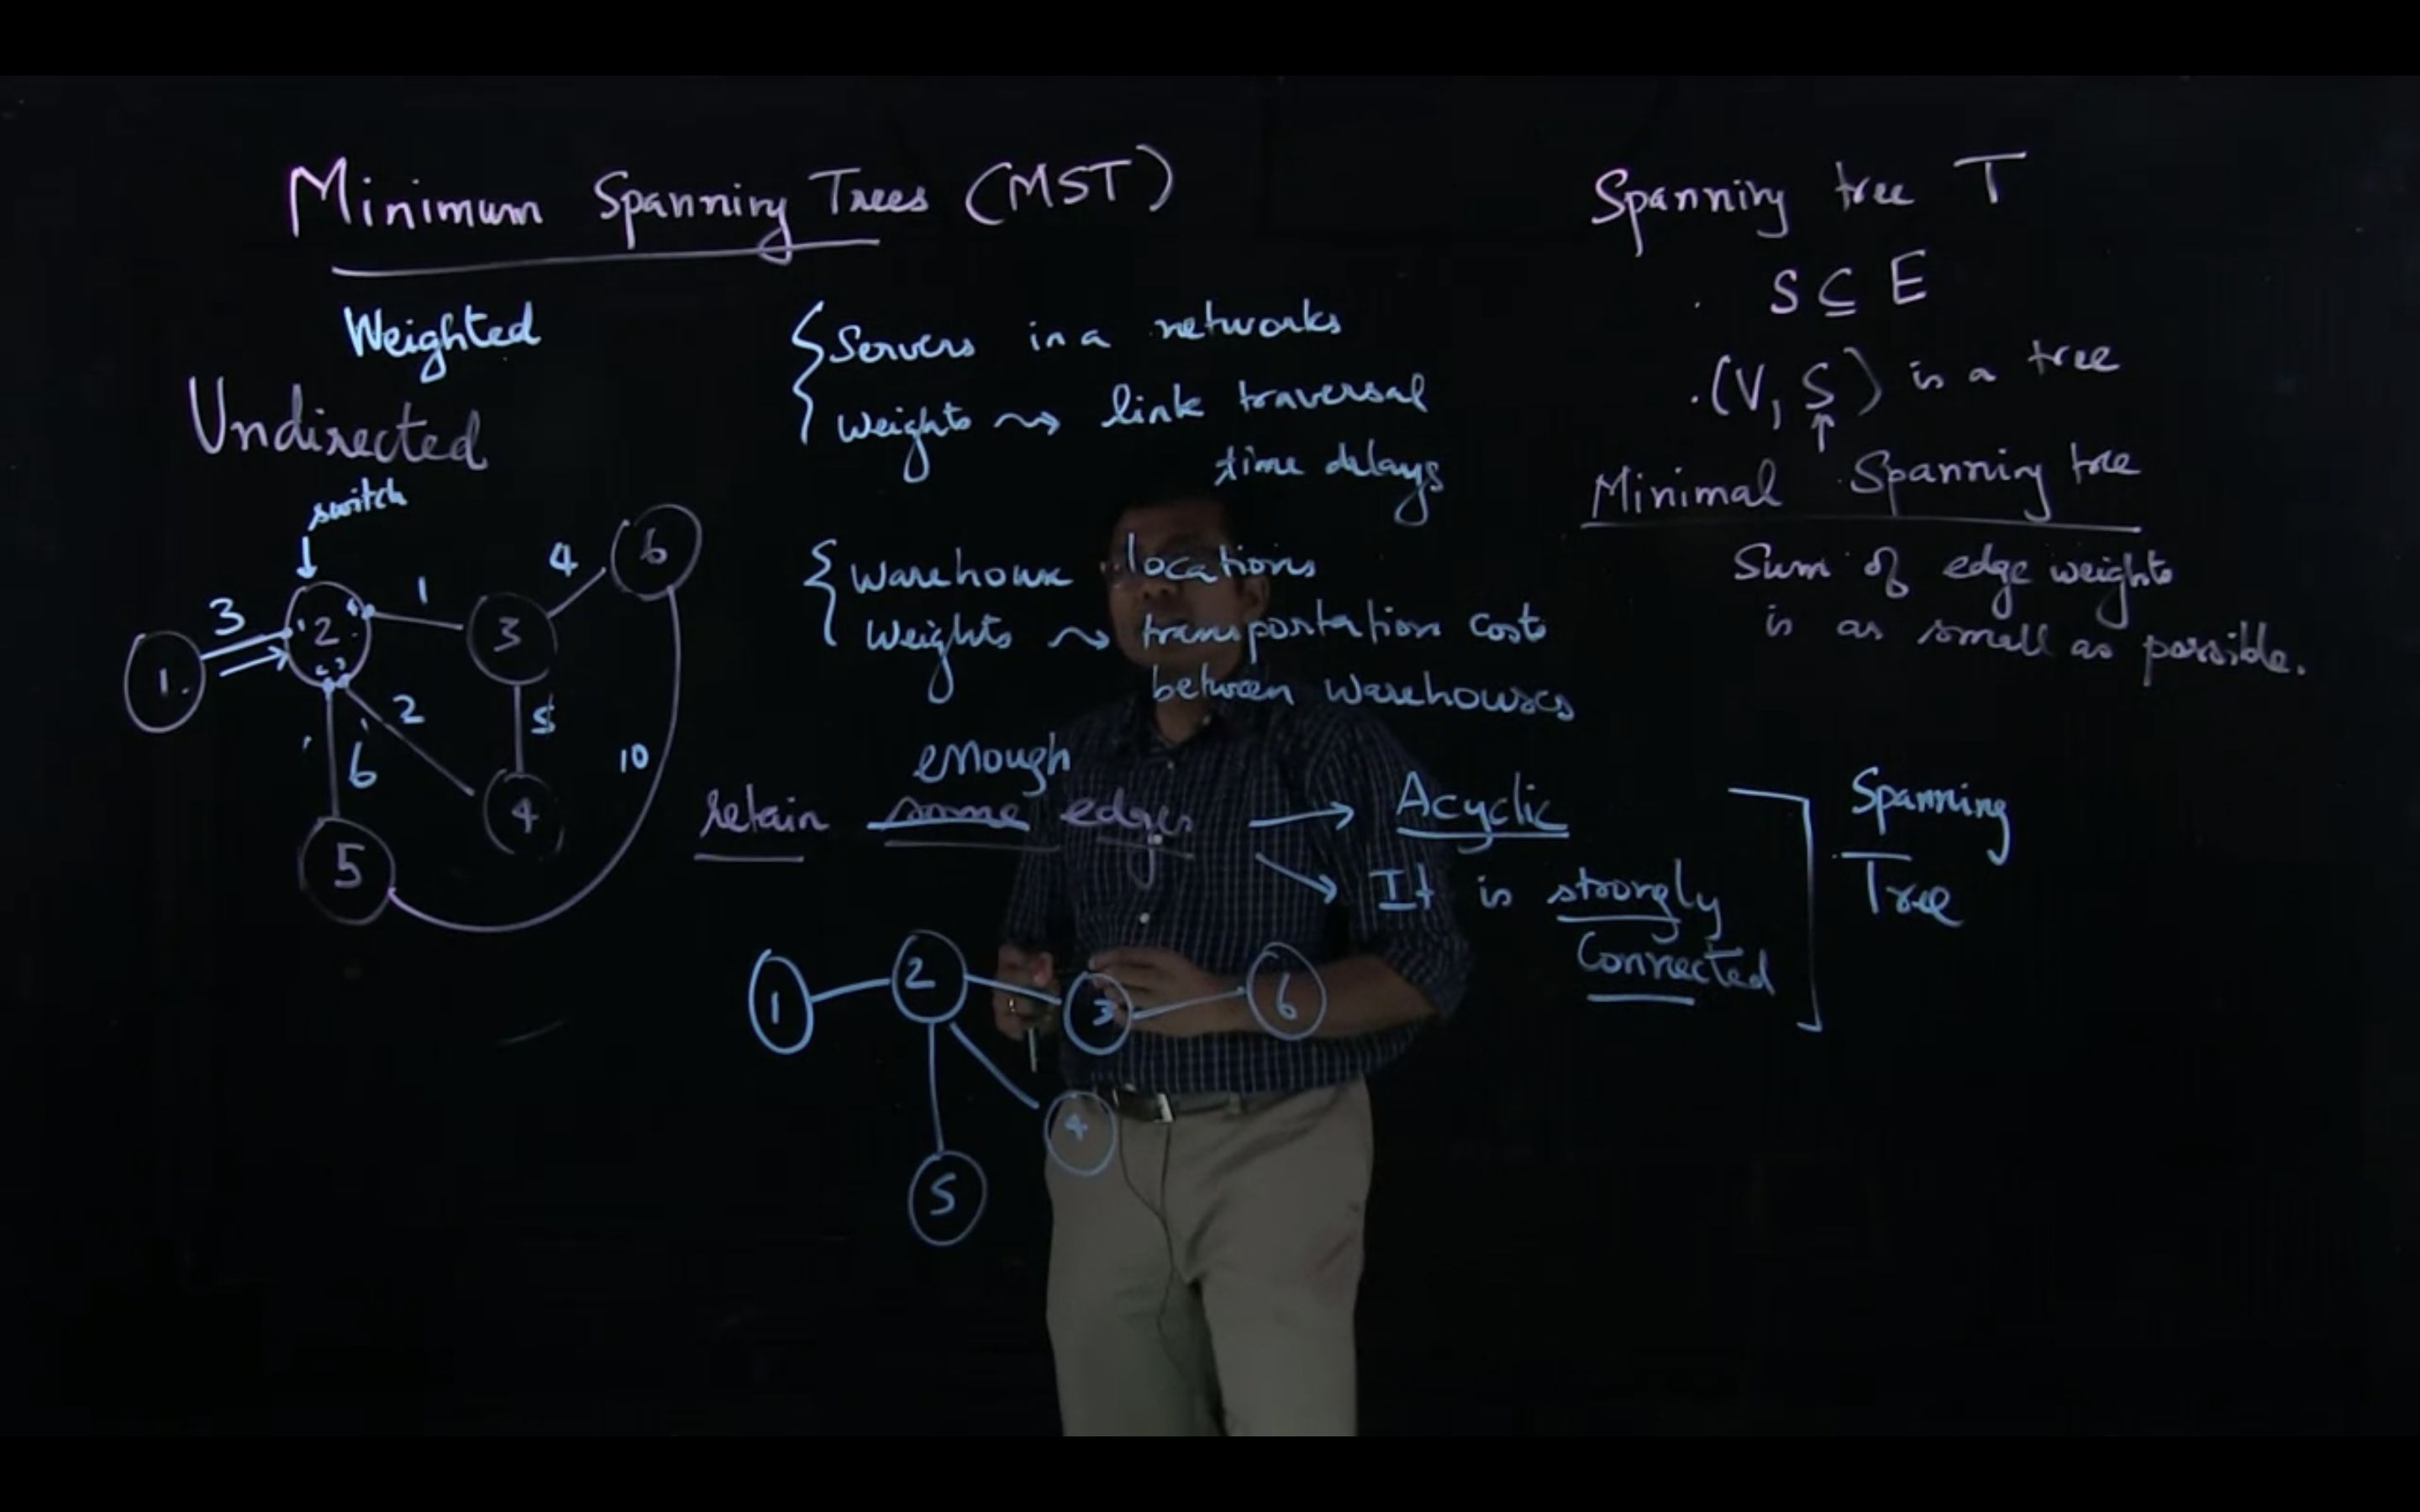 Minimum Spanning Trees (MST)
Weighted
Undirected
switch
3
1
4
6
2
3
1.
2
5
6
4
10
5
{ Servers in a networks
Weights ⇝ link traversal
time delays
{ Warehouse locations
Weights ⇝ transportation costs
between warehouses
enough
retain some edges → Acyclic
→ It is strongly
Connected
Spanning
Tree
1
2
3
6
4
5
Spanning tree T
. S ⊆ E
. (V, S) is a tree
↑
Minimal Spanning tree
Sum of edge weights
is as small as possible.